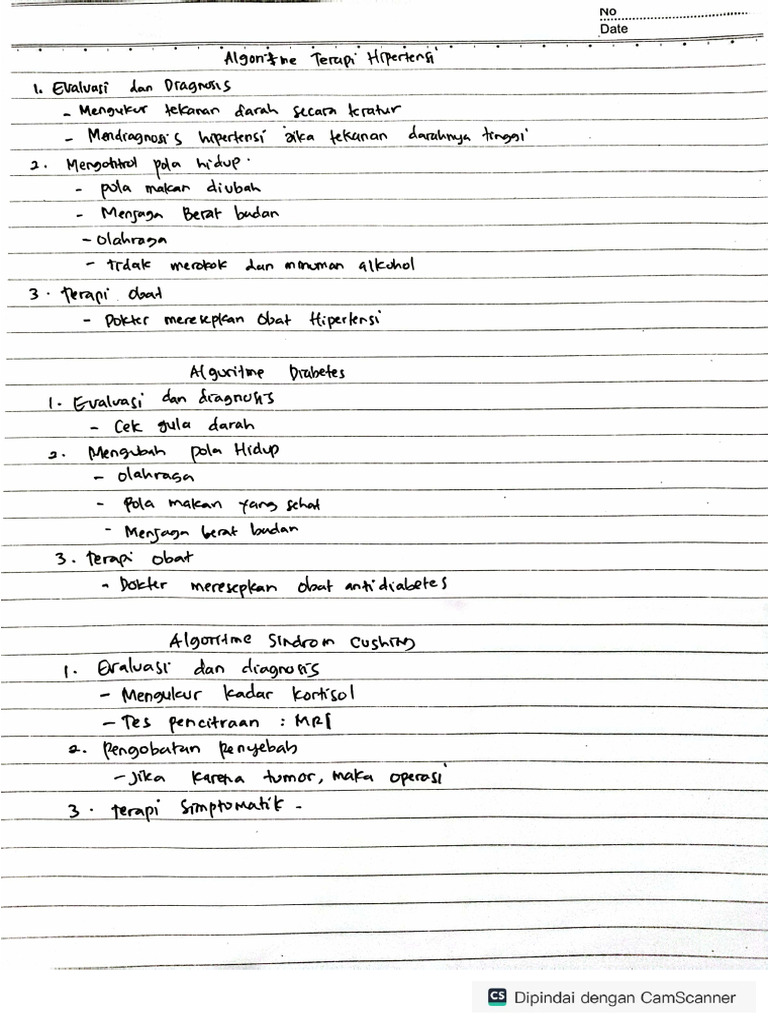 No
Date
Algoritme Terapi Hipertensi
1. Evaluasi dan Diagnosis
- Mengukur tekanan darah secara teratur
- Mendiagnosis hipertensi jika tekanan darahnya tinggi
2. Mengontrol pola hidup.
- pola makan diubah
- Menjaga Berat badan
- Olahraga
- tidak merokok dan minuman alkohol
3. terapi obat
- Dokter meresepkan Obat Hipertensi
Algoritme Diabetes
1. Evaluasi dan diagnosis
- Cek gula darah
2. Mengubah pola Hidup
- olahraga
- Pola makan yang sehat
- Menjaga berat badan
3. terapi obat
- Dokter meresepkan obat antidiabetes
Algoritme Sindrom Cushing
1. Evaluasi dan diagnosis
- Mengukur kadar kortisol
- Tes pencitraan : MRI
2. Pengobatan Penyebab
- Jika karena tumor, maka operasi
3. terapi Simptomatik -
CS Dipindai dengan CamScanner